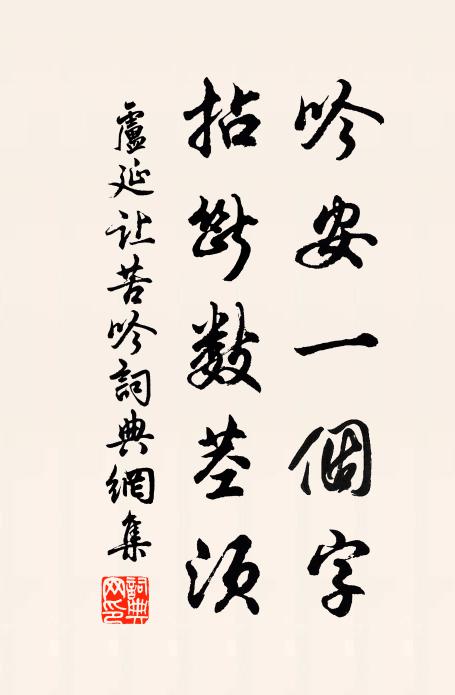 吟安一個字
拈斷数莖须
盧延让苦吟詞典網集
詞典网印